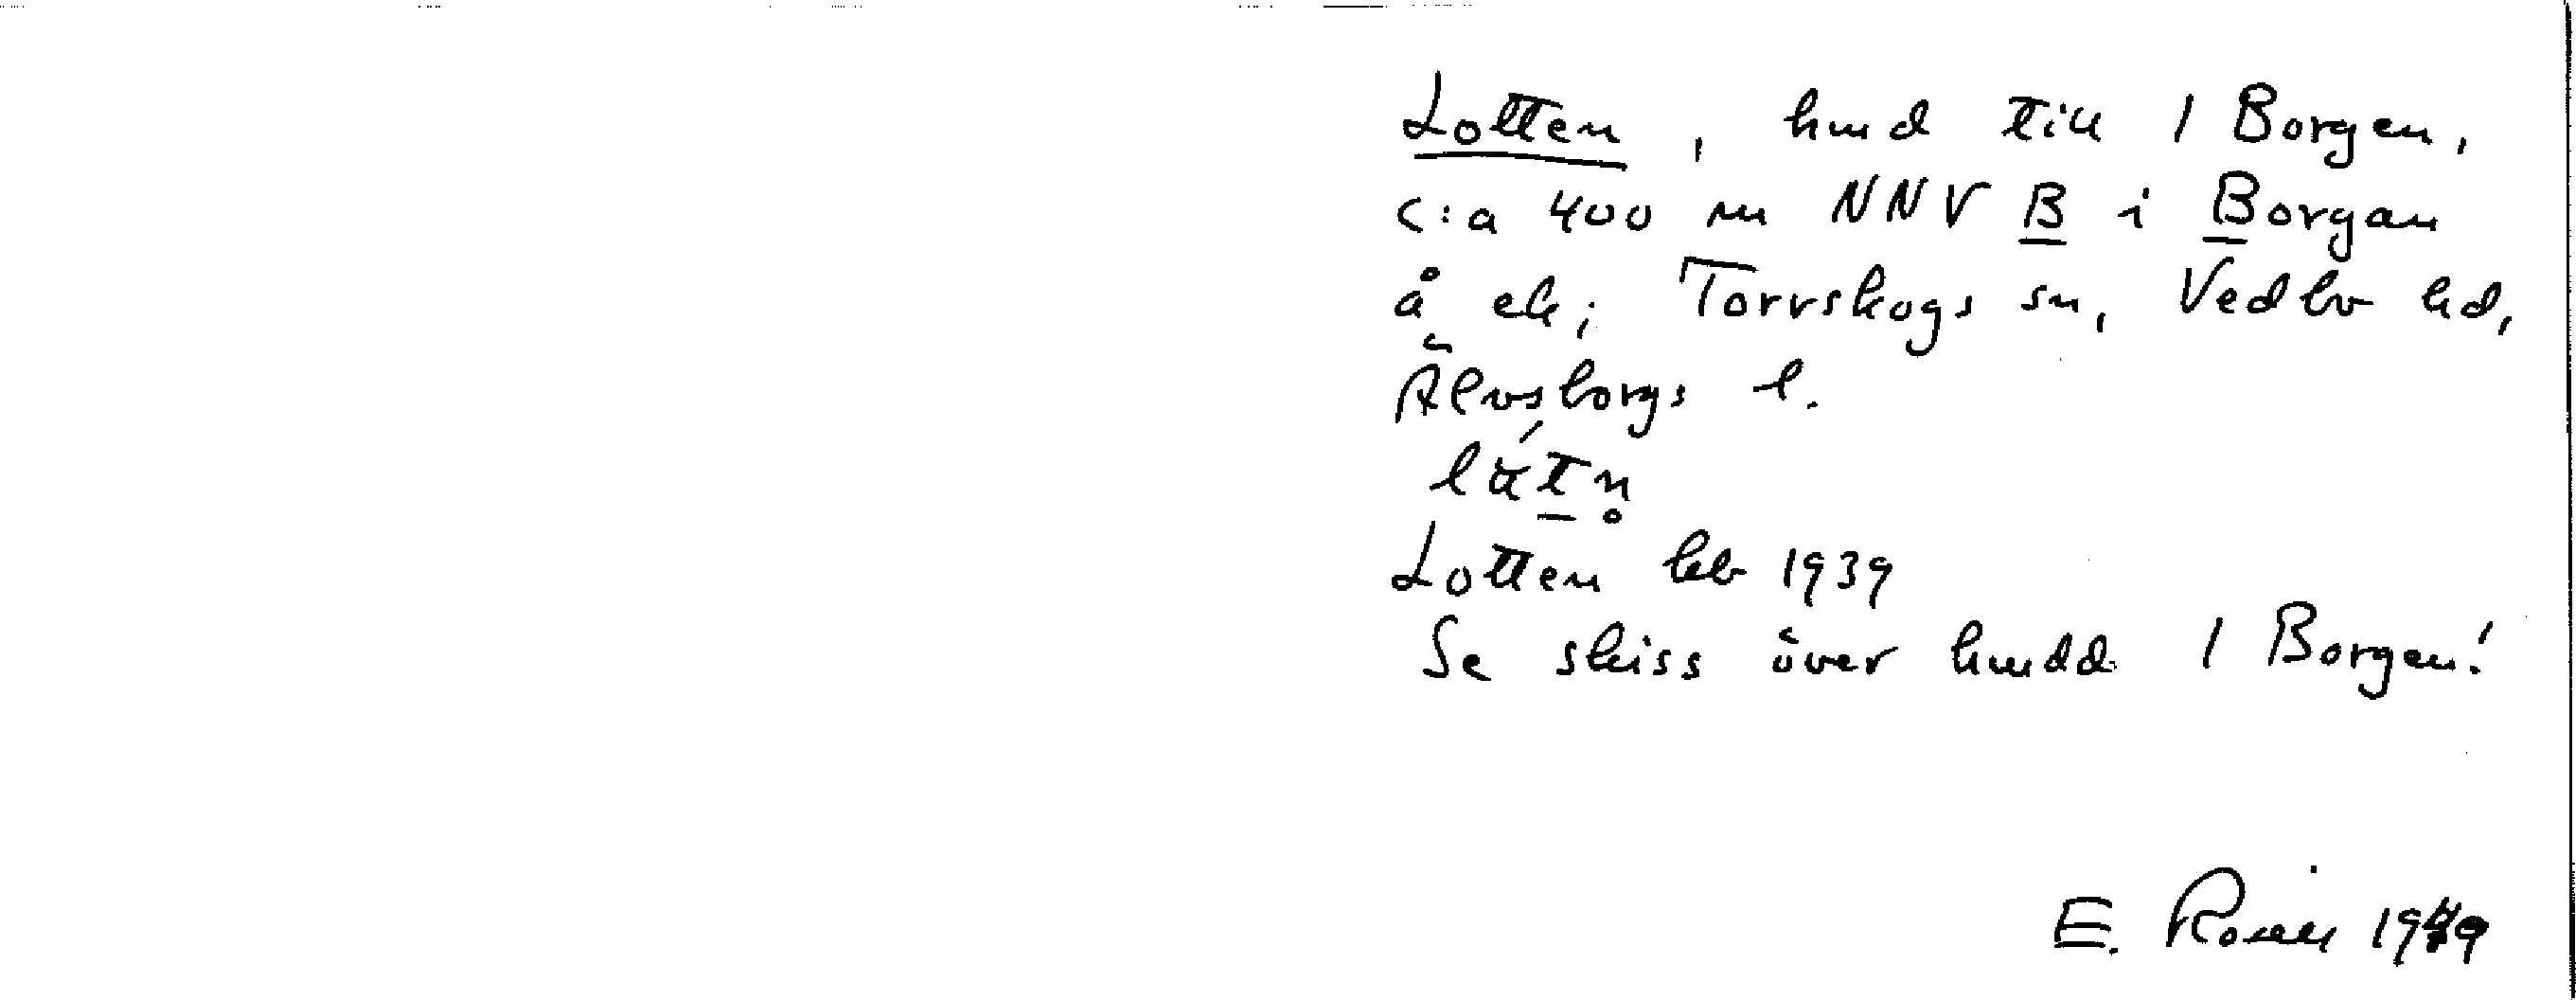 Lotten, hmd till 1 Borgen,
c:a 400 m NNV B i Borgan
å ek; Torrskogs sn, Vedbo hd,
Älvsborgs l.
Lotten kb 1939
Se skiss över hmdd 1 Borgen!
E. 1949